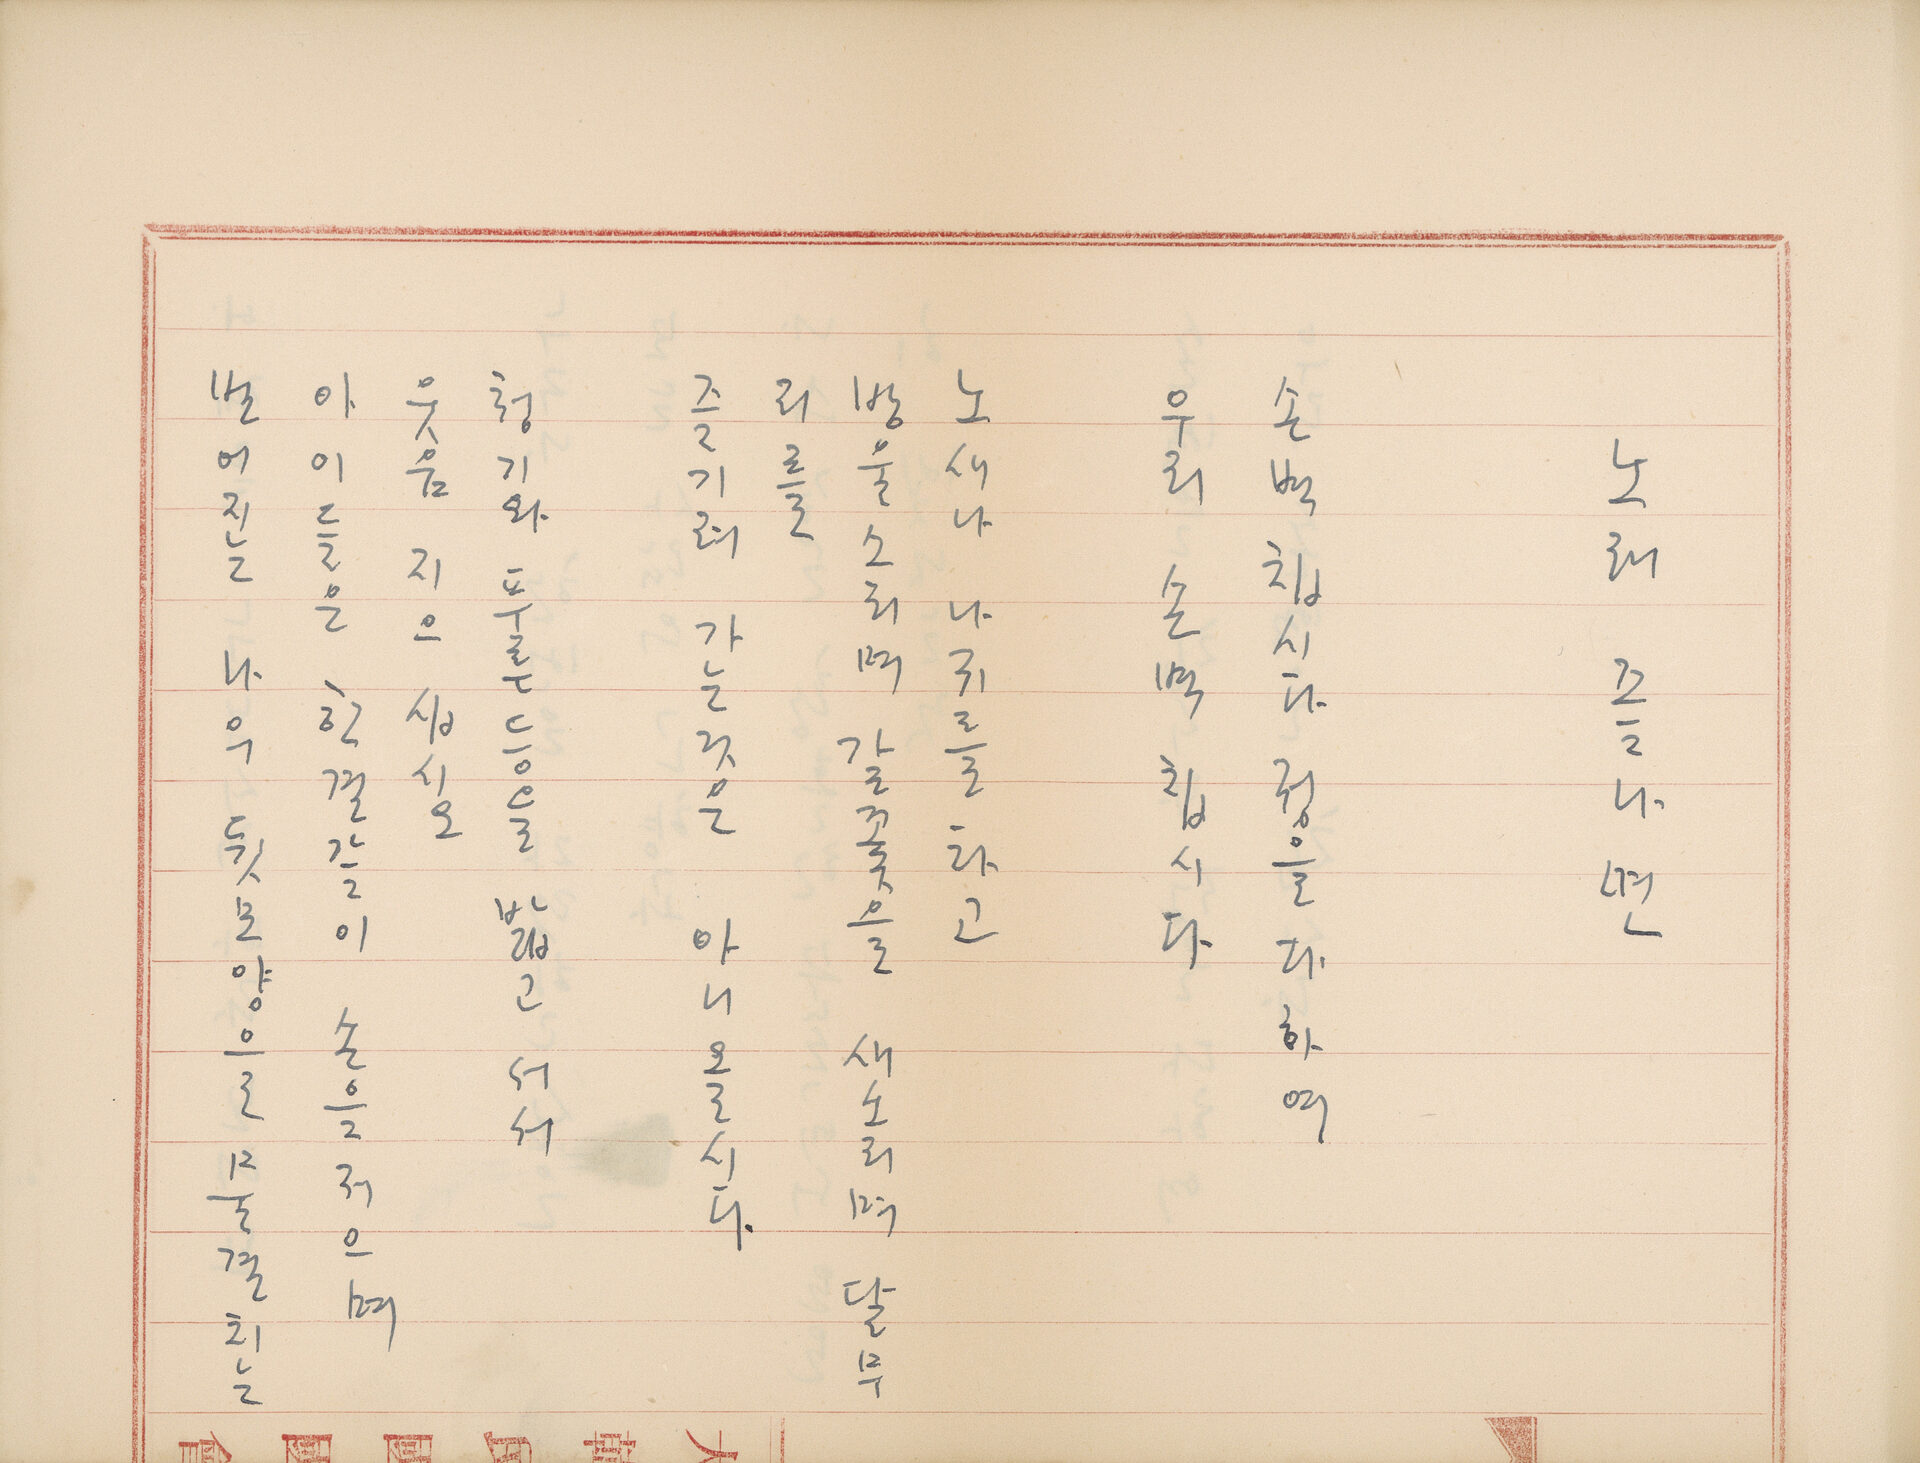 노래 끝나 면
손벽 칩시다 정을 다하여
우리 손벽 칩시다
노새나 나귀를 타고
방울소리며 갈꽃을 새소리며 달무
리를
즐기려 가는 것은 아니올시다.
청기와 푸른등을 밟고 서서
웃음 지으 십시오
아이들은 한결같이 손을 저으며
멀어지는 나의 뒷모양으로 물결치는
大韓民國國會